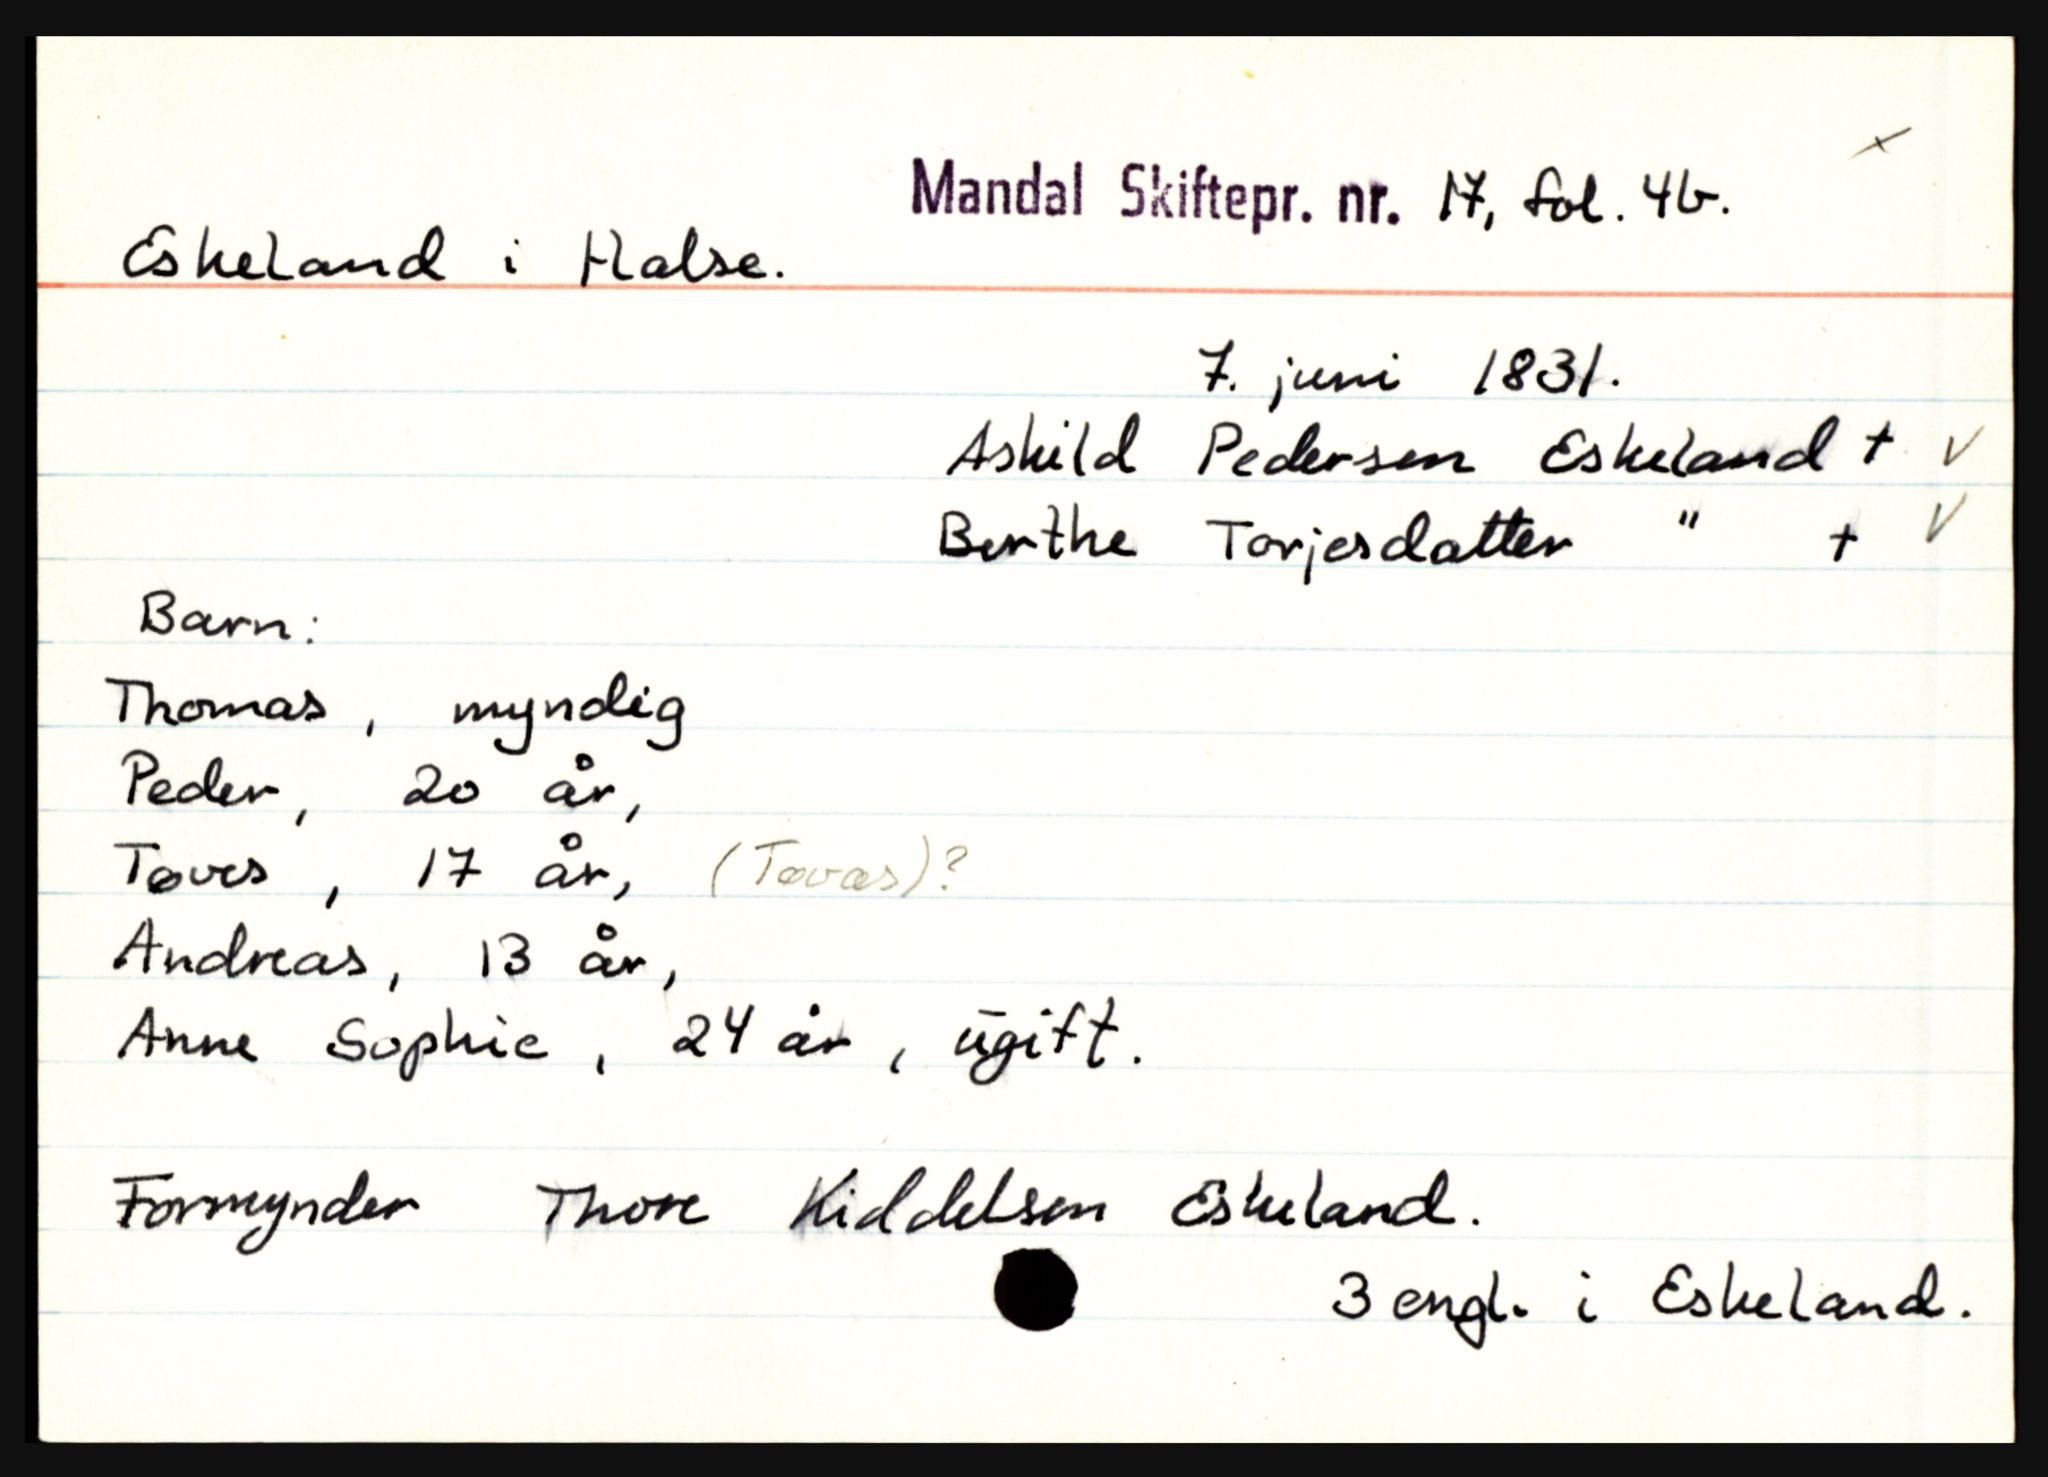 Mandal Skiftepr. nr. 17, fol. 4b.
Eskeland i Halse.
7. juni 1831.
Askild Pedersen Eskeland + V
Berthe Torjesdatter " + V
Barn:
Thomas, myndig
Peder, 20 år,
Tøves, 17 år, (Tøvas)?
Andreas, 13 år,
Anne Sophie, 24 år, ūgift.
Formynder Thore Kiddelsen Eskeland.
3 engl. i Eskeland.